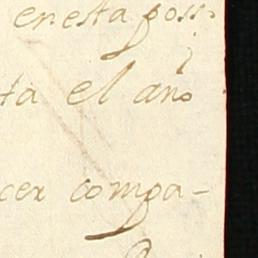 en esta poss.
ta el año
cer compa-